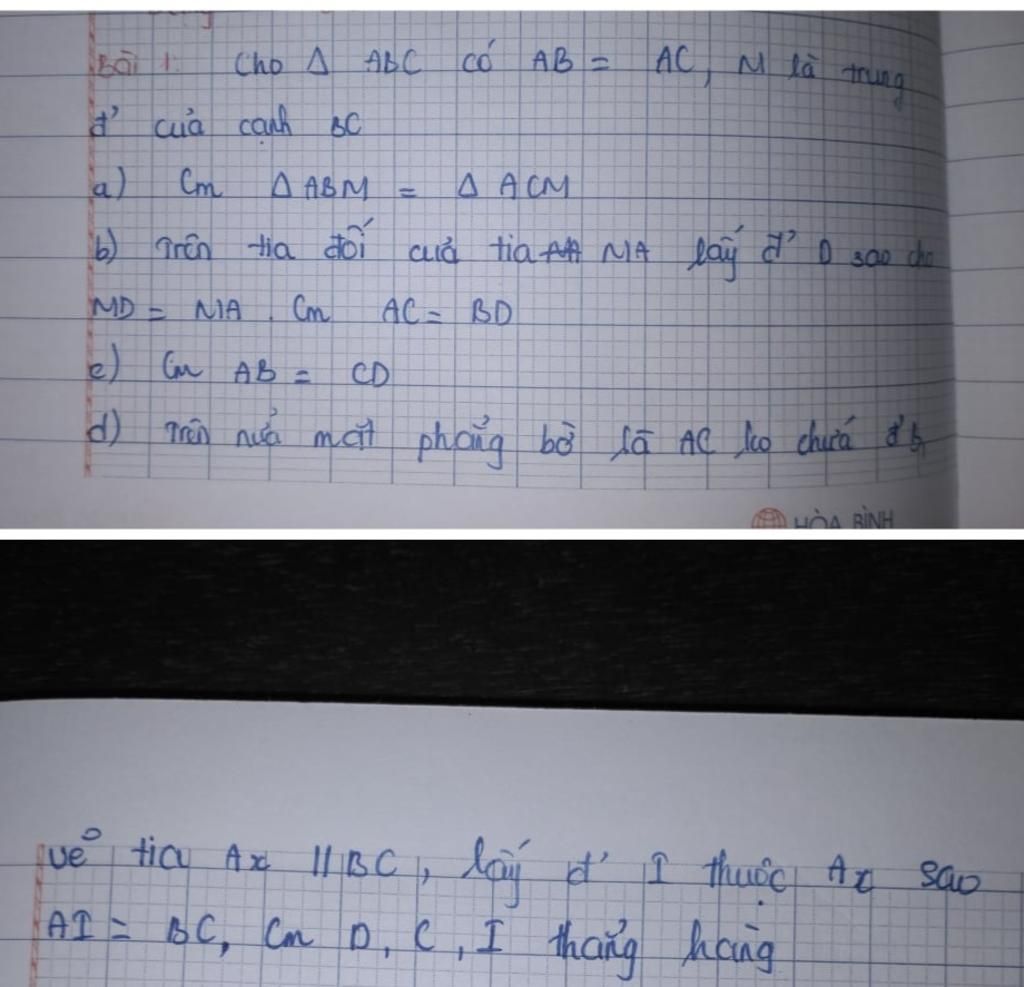 Bài 1: Cho Δ ABC có AB = AC, M là trung
đ' của cạnh BC
a) Cm Δ ABM = Δ ACM
b) Trên tia đối của tia MA lấy đ' D sao cho
MD = MA. Cm AC = BD
c) Cm AB = CD
d) Trên nửa mặt phẳng bờ là AC ko chứa đ' B
HÒA BÌNH
vẽ tia Ax // BC, lấy đ' I thuộc Ax sao
AI = BC, Cm D, C, I thẳng hàng